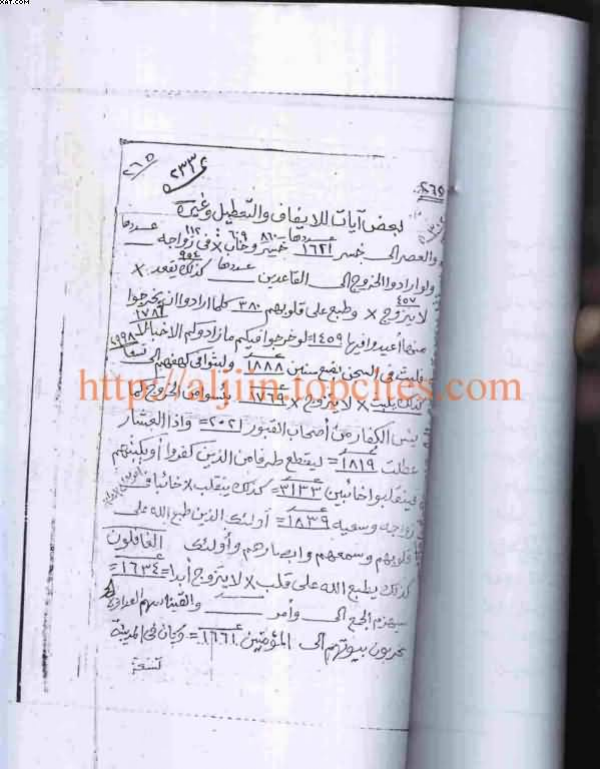 XAT.COM
٢٦٥ ٢٣٣
٢٦٥
بعض آيات للايقاف والتعطيل وغيره
والعصر الى خسر عددها ١٦٢١ ٨٦٠ ٦٠٩ ١١٢ خسر وخاب × فى زواجه عددها
ولو ارادوا الخروج الى القاعدين عددها ٩٥٤ كذلك تقعد ×
لا يتزوج ٤٥٧ × وطبع على قلوبهم ٣٨٠ كلما ارادوا ان يخرجوا
منها أعيدوا فيها ١٤٥٩ لو خرجوا فيكم ما زادوكم الا خبالا ١٧٨٢
فلبث فى السجن بضع سنين ١٨٨٨ ولبثوا فى كهفهم الى تسعا ٢٩٩٨
كذلك يلبث × لا يتزوج × ١٧٦٩
http://aljiin.topcites.com
يئس الكفار من أصحاب القبور ٢٠٢١ = واذا العشار
عطلت ١٨١٩ = ليقطع طرفا من الذين كفروا أو يكبتهم
فينقلبوا خائبين ٣١٣٣ = كذلك ينقلب × خائبا فى
زواجه وسعيه ١٨٣٩ = أولئك الذين طبع الله على
قلوبهم وسمعهم وابصارهم وأولئك الغافلون
كذلك يطبع الله على قلب × لا يتزوج أبدا = ١٦٣٤ =
سيهزم الجمع الى وأمر والقينا بينهم العداوة
يخربون بيوتهم الى المؤمنين ١٦٦١ = وكان فى المدينة
تسعة